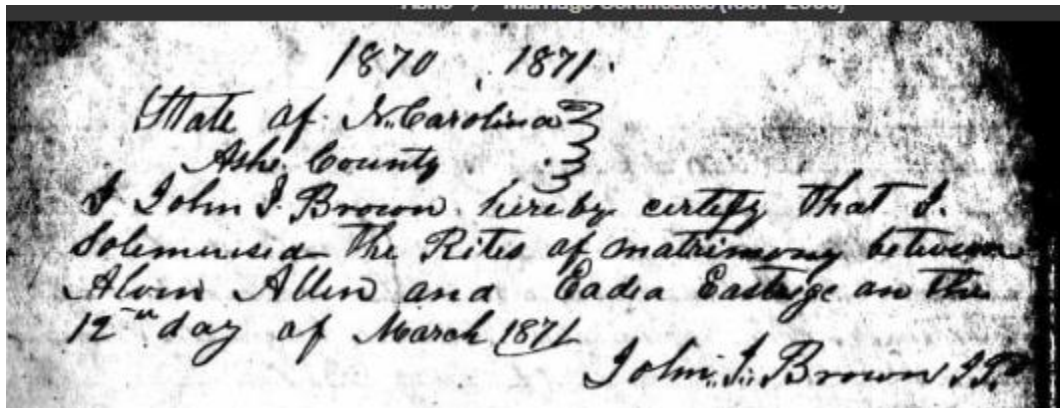 Ashe > Marriage Certificates (1851 - 2000)
1870 . 1871.
State of N. Carolina
Ashe County
I John J. Brown hereby certify that I.
Solemnised the Rites of matrimony between
Alvin Allen and Eadea Eastrige on the
12th day of March 1871
John. J. Brown J.P.